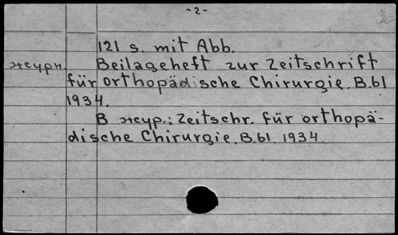 -2-
2
121 s. mit Abb.
журн. Beilageheft zur Zeitschrift
für orthopädische Chirurgie. B.61
1934.
В журн.: Zeitschr. für orthopä-
dische Chirurgie. B.61. 1934.